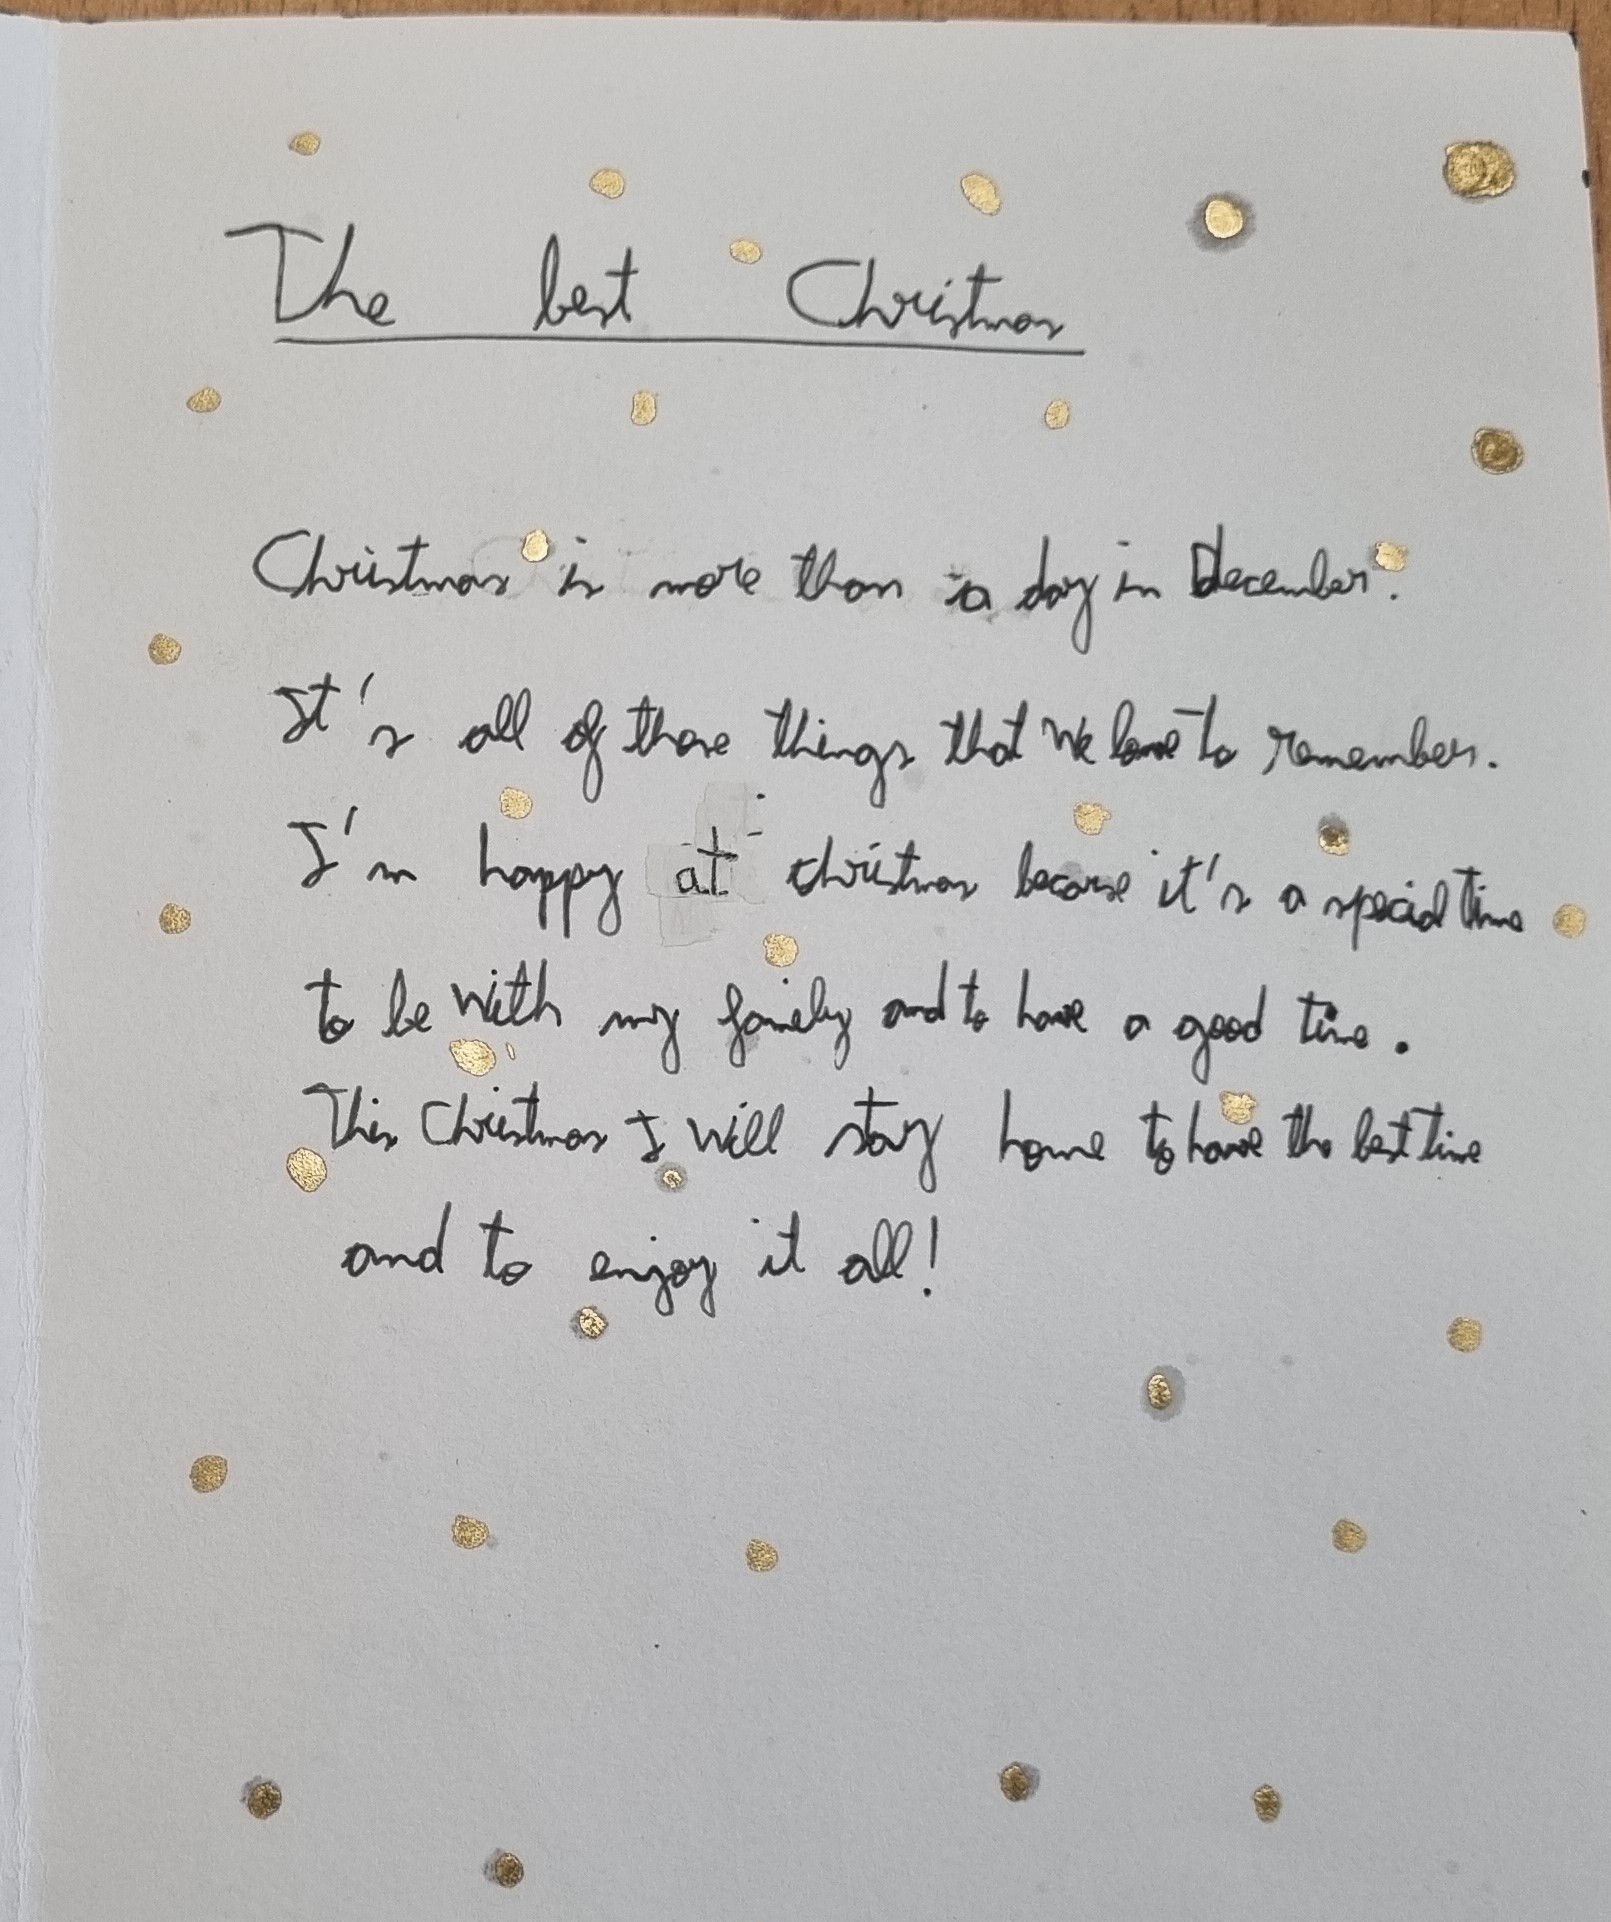 The best Christmas
Christmas is more than a day in December.
It's all of those things that we love to remember.
I'm happy at christmas because it's a special time
to be with my family and to have a good time.
This Christmas I will stay home to have the best time
and to enjoy it all!